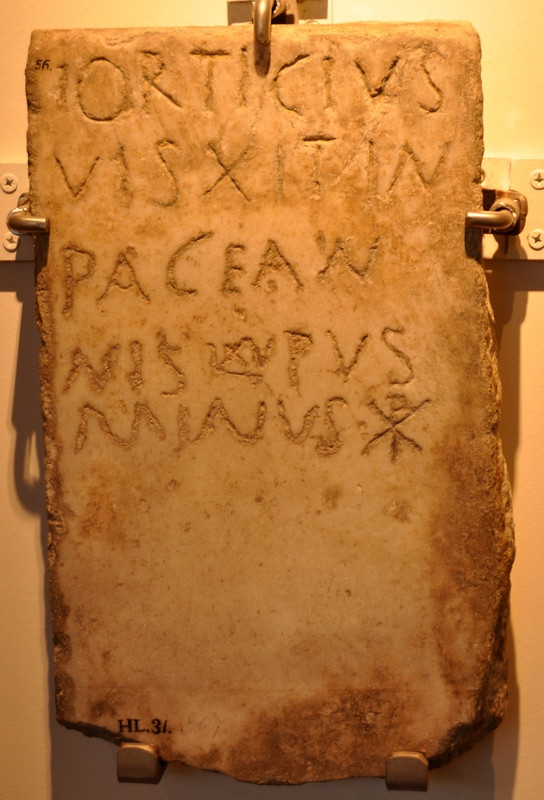 56.
IORTICIVS
VISXIT IN
PACE AN
NIS LV PVS
MINUS ☧
HL.31.